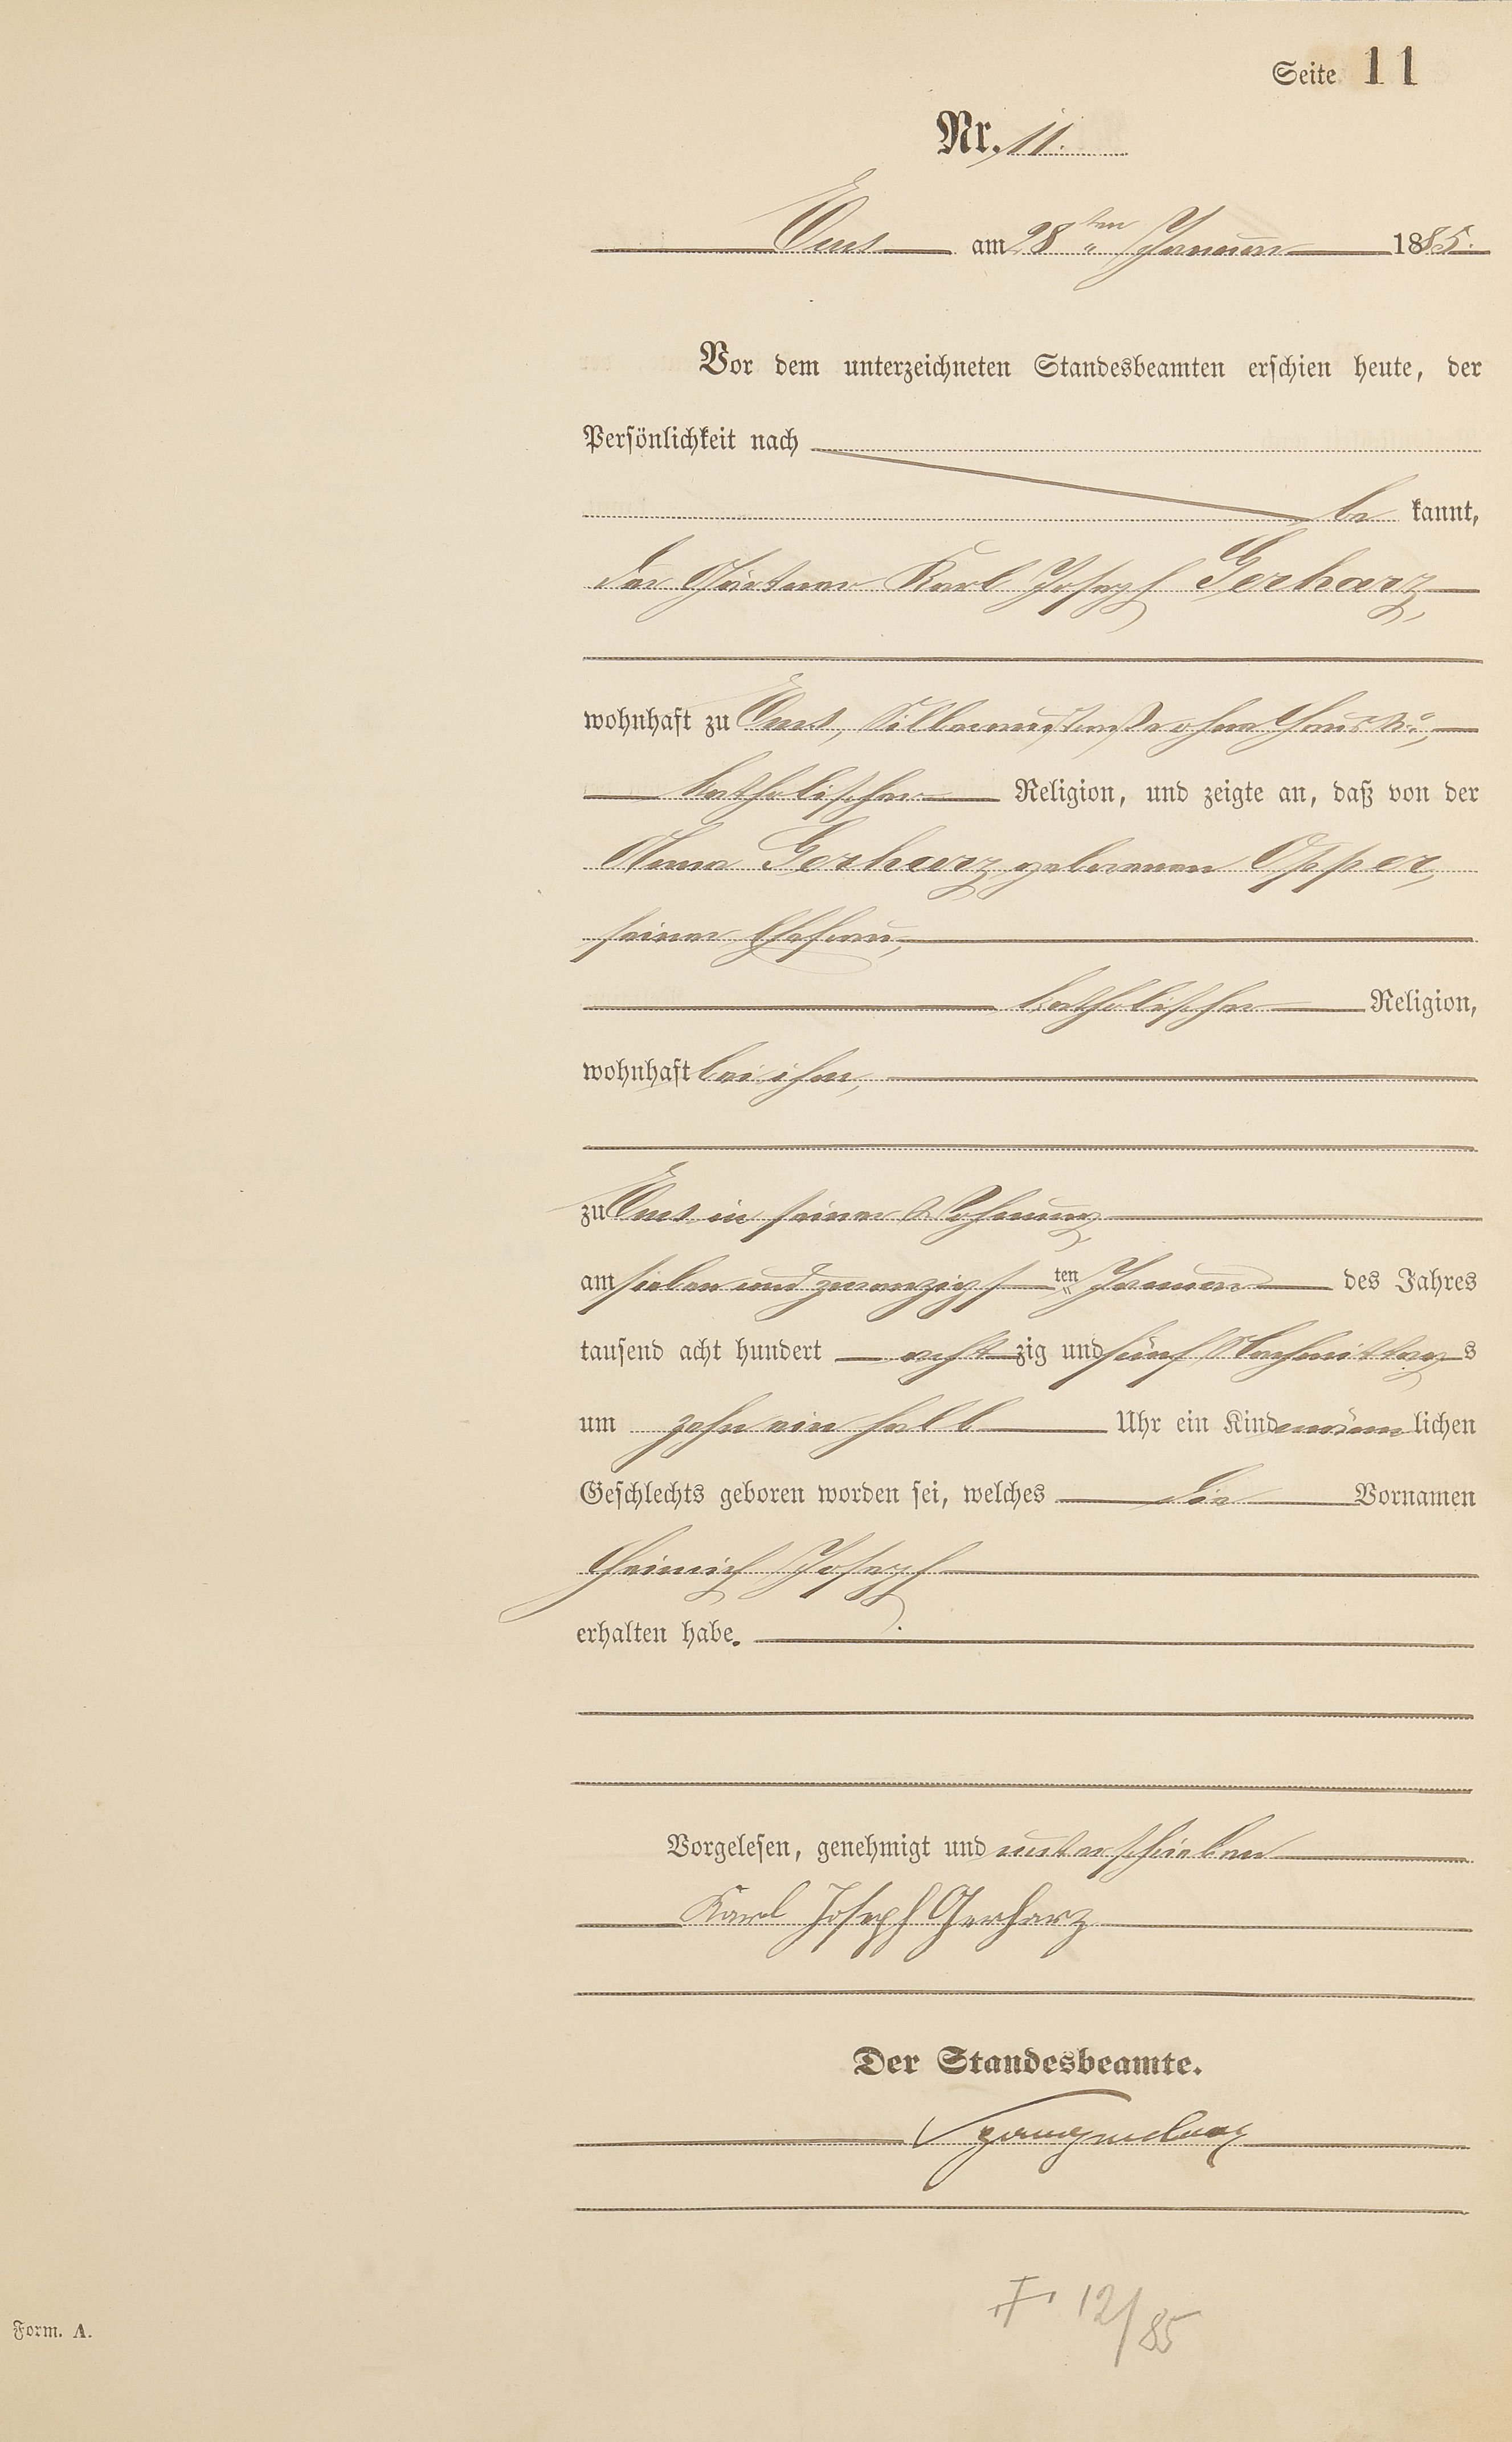 Seite 11
Nr. 11.
Ems am 28ten Januar 1885.
Vor dem unterzeichneten Standesbeamten erschien heute, der
Persönlichkeit nach
be kannt,
der Gärtner Karl Joseph Gerharz,
wohnhaft zu Ems, Silberaustraße ohne Haus No,
katholischer Religion, und zeigte an, daß von der
Anna Gerharz geborenen Opper,
seiner Ehefrau,
katholischer Religion,
wohnhaft bei ihm,
zu Ems in seiner Wohnung
am sieben und zwanzigsten Januar des Jahres
tausend acht hundert acht zig und fünf Nachmittags
um zehn ein halb Uhr ein Kind männlichen
Geschlechts geboren worden sei, welches die Vornamen
Heinrich Joseph
erhalten habe.
Vorgelesen, genehmigt und unterschrieben
Karl Joseph Gerharz
Der Standesbeamte.
Spangenberg
12/85
Form. A.